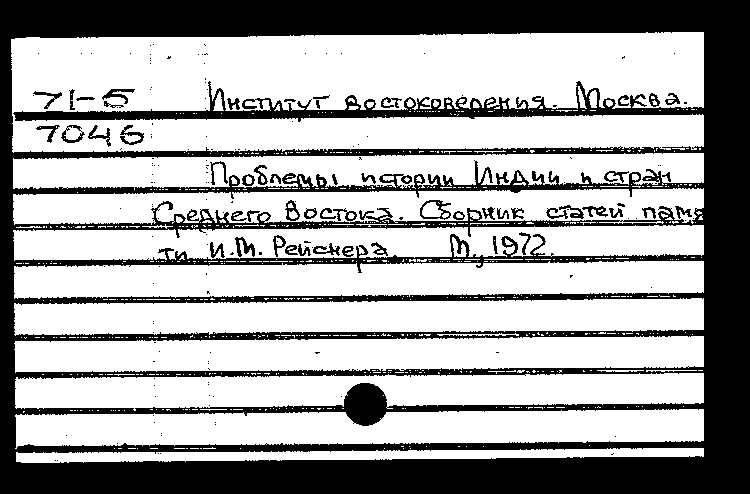 71-5 Институт востоковедения. Москва.
7046
Проблемы истории Индии и стран
Среднего Востока. Сборник статей памя
ти И.М. Рейснера. М., 1972.